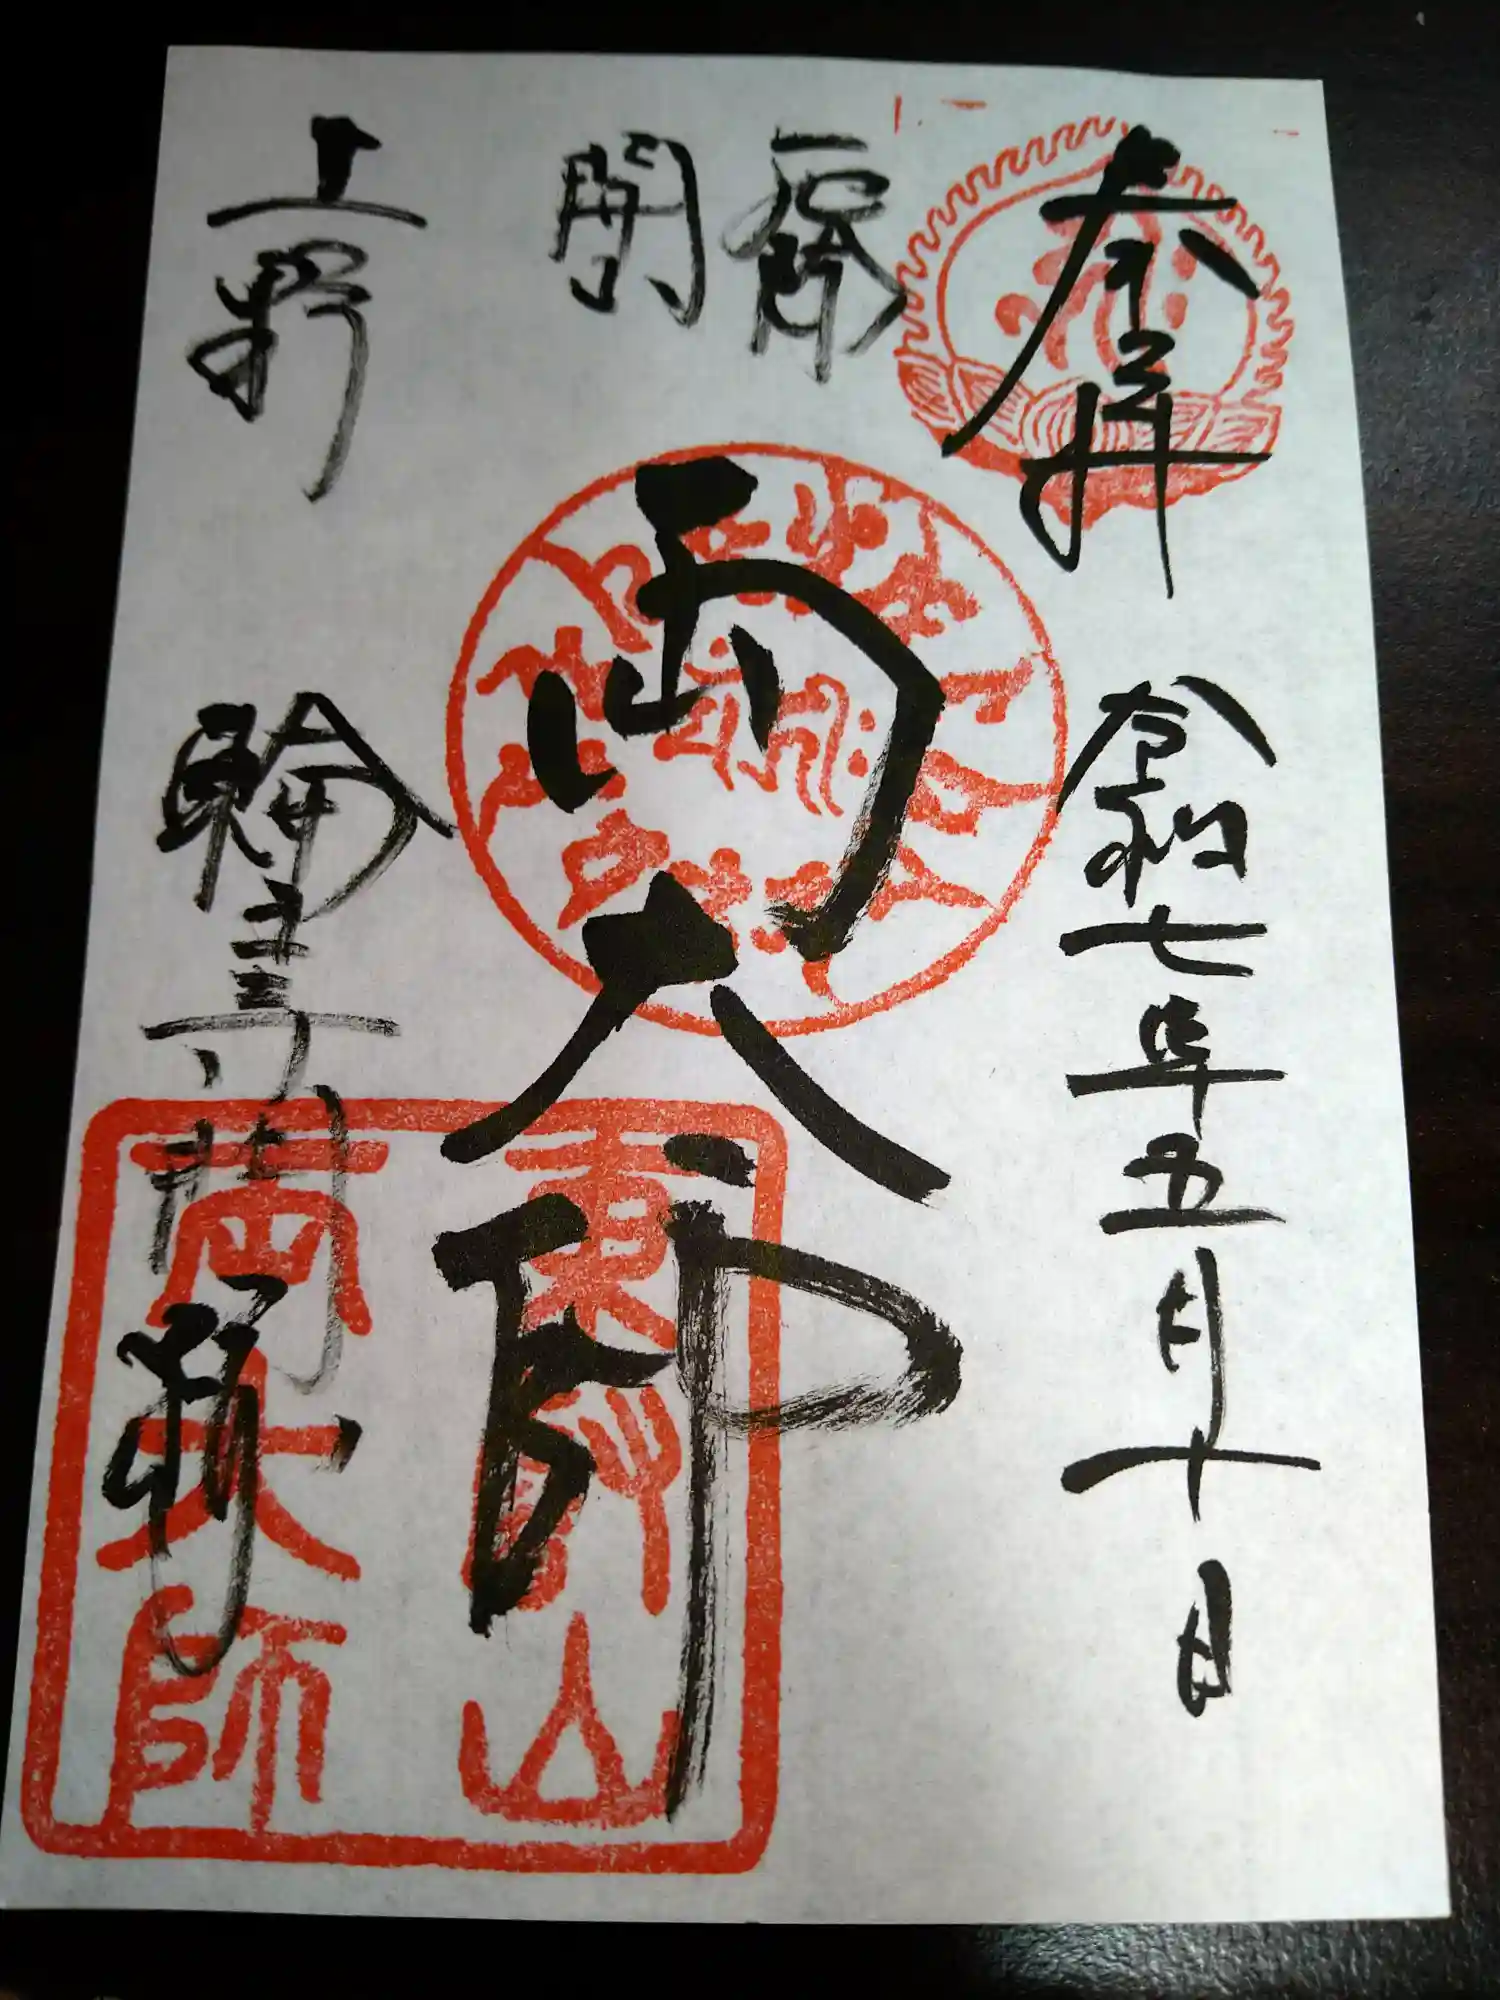 奉拝
令和七年五月十日
両大師
上野
輪王寺門跡
東叡山
両大師